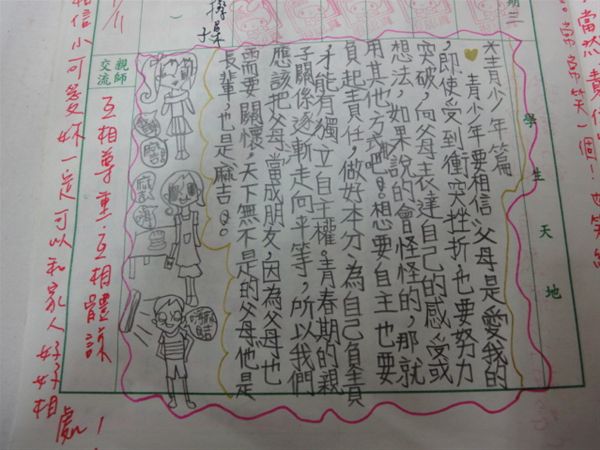 期三
學生天地
米青少年篇
青少年要相信、父母是愛我的
，即使受到衝突挫折也要努力
突破，向父母表達自己的感受或
想法，如果說的會怪怪的，那就
用其他方式吧。想要自主也要
負起責任，做好本分、為自己負責
才能有獨立自主權。青春期的親
子關係逐漸走向平等，所以我們
應該把父母當成朋友，因為父母也
需要關懷，天下無不是的父母他是
長輩，也是麻吉。
親師交流
互相尊重．互相體諒
相信小可愛妹一定可以和家人好好相
處！